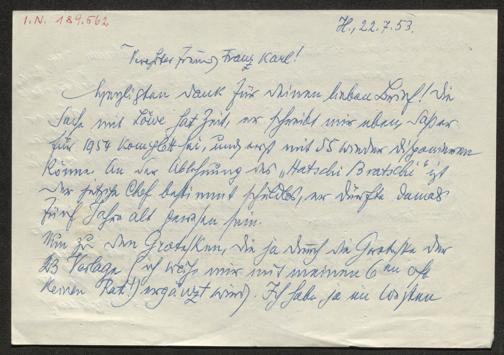 I.N. 189.562
H., 22.7.53.
Verehrter Freund Franz Karl!
Herzlichsten Dank für Deinen lieben Brief! Die
Sache mit Löwe hat Zeit, er schreibt mir eben, daß er
für 1954 komplett sei, und erst mit 55 wieder disponieren
könne. An der Ablehnung des "Hatschi Bratschi" ist
der jetzige Chef bestimmt schuldlos, er dürfte damals
fünf Jahre alt gewesen sein.
Nun zu den Grotesken, die ja durch die Groteske der
23 Verlage (ich weiß mir mit meinen 6 en oft
keinen Rat!) ergänzt wird. Ich habe ja im besten